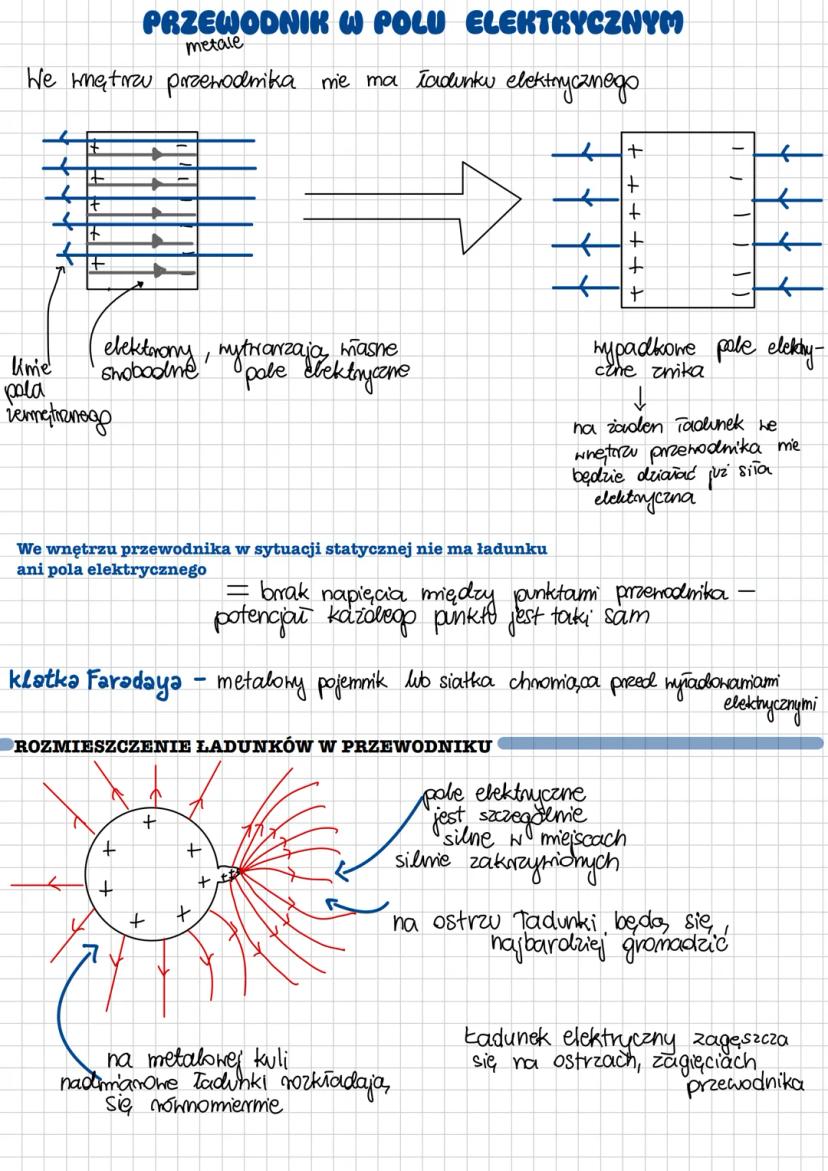 PRZEWODNIK W POLU ELEKTRYCZNYM
metale
We wnętrzu przewodnika nie ma ładunku elektrycznego
+ -
+ -
+ -
+ -
+ -
+ -
+ -
+ -
+ -
+ -
+ -
linie
pola
zewnętrznego
elektrony, wytwarzają własne
swobodne pole elektryczne
wypadkowe pole elektry-
czne znika
↓
na żaden ładunek we
wnętrzu przewodnika nie
będzie działać już siła
elektryczna
We wnętrzu przewodnika w sytuacji statycznej nie ma ładunku
ani pola elektrycznego
= brak napięcia między punktami przewodnika –
potencjał każdego punktu jest taki sam
klatka Faradaya - metalowy pojemnik lub siatka chroniąca przed wyładowaniami
elektrycznymi
ROZMIESZCZENIE ŁADUNKÓW W PRZEWODNIKU
+
+ +
+ + ++
+ +
pole elektryczne
jest szczególnie
silne w miejscach
silnie zakrzywionych
na ostrzu ładunki będą się
najbardziej gromadzić
na metalowej kuli
nadmiarowe ładunki rozkładają
się równomiernie
Ładunek elektryczny zagęszcza
się na ostrzach, zagięciach
przewodnika